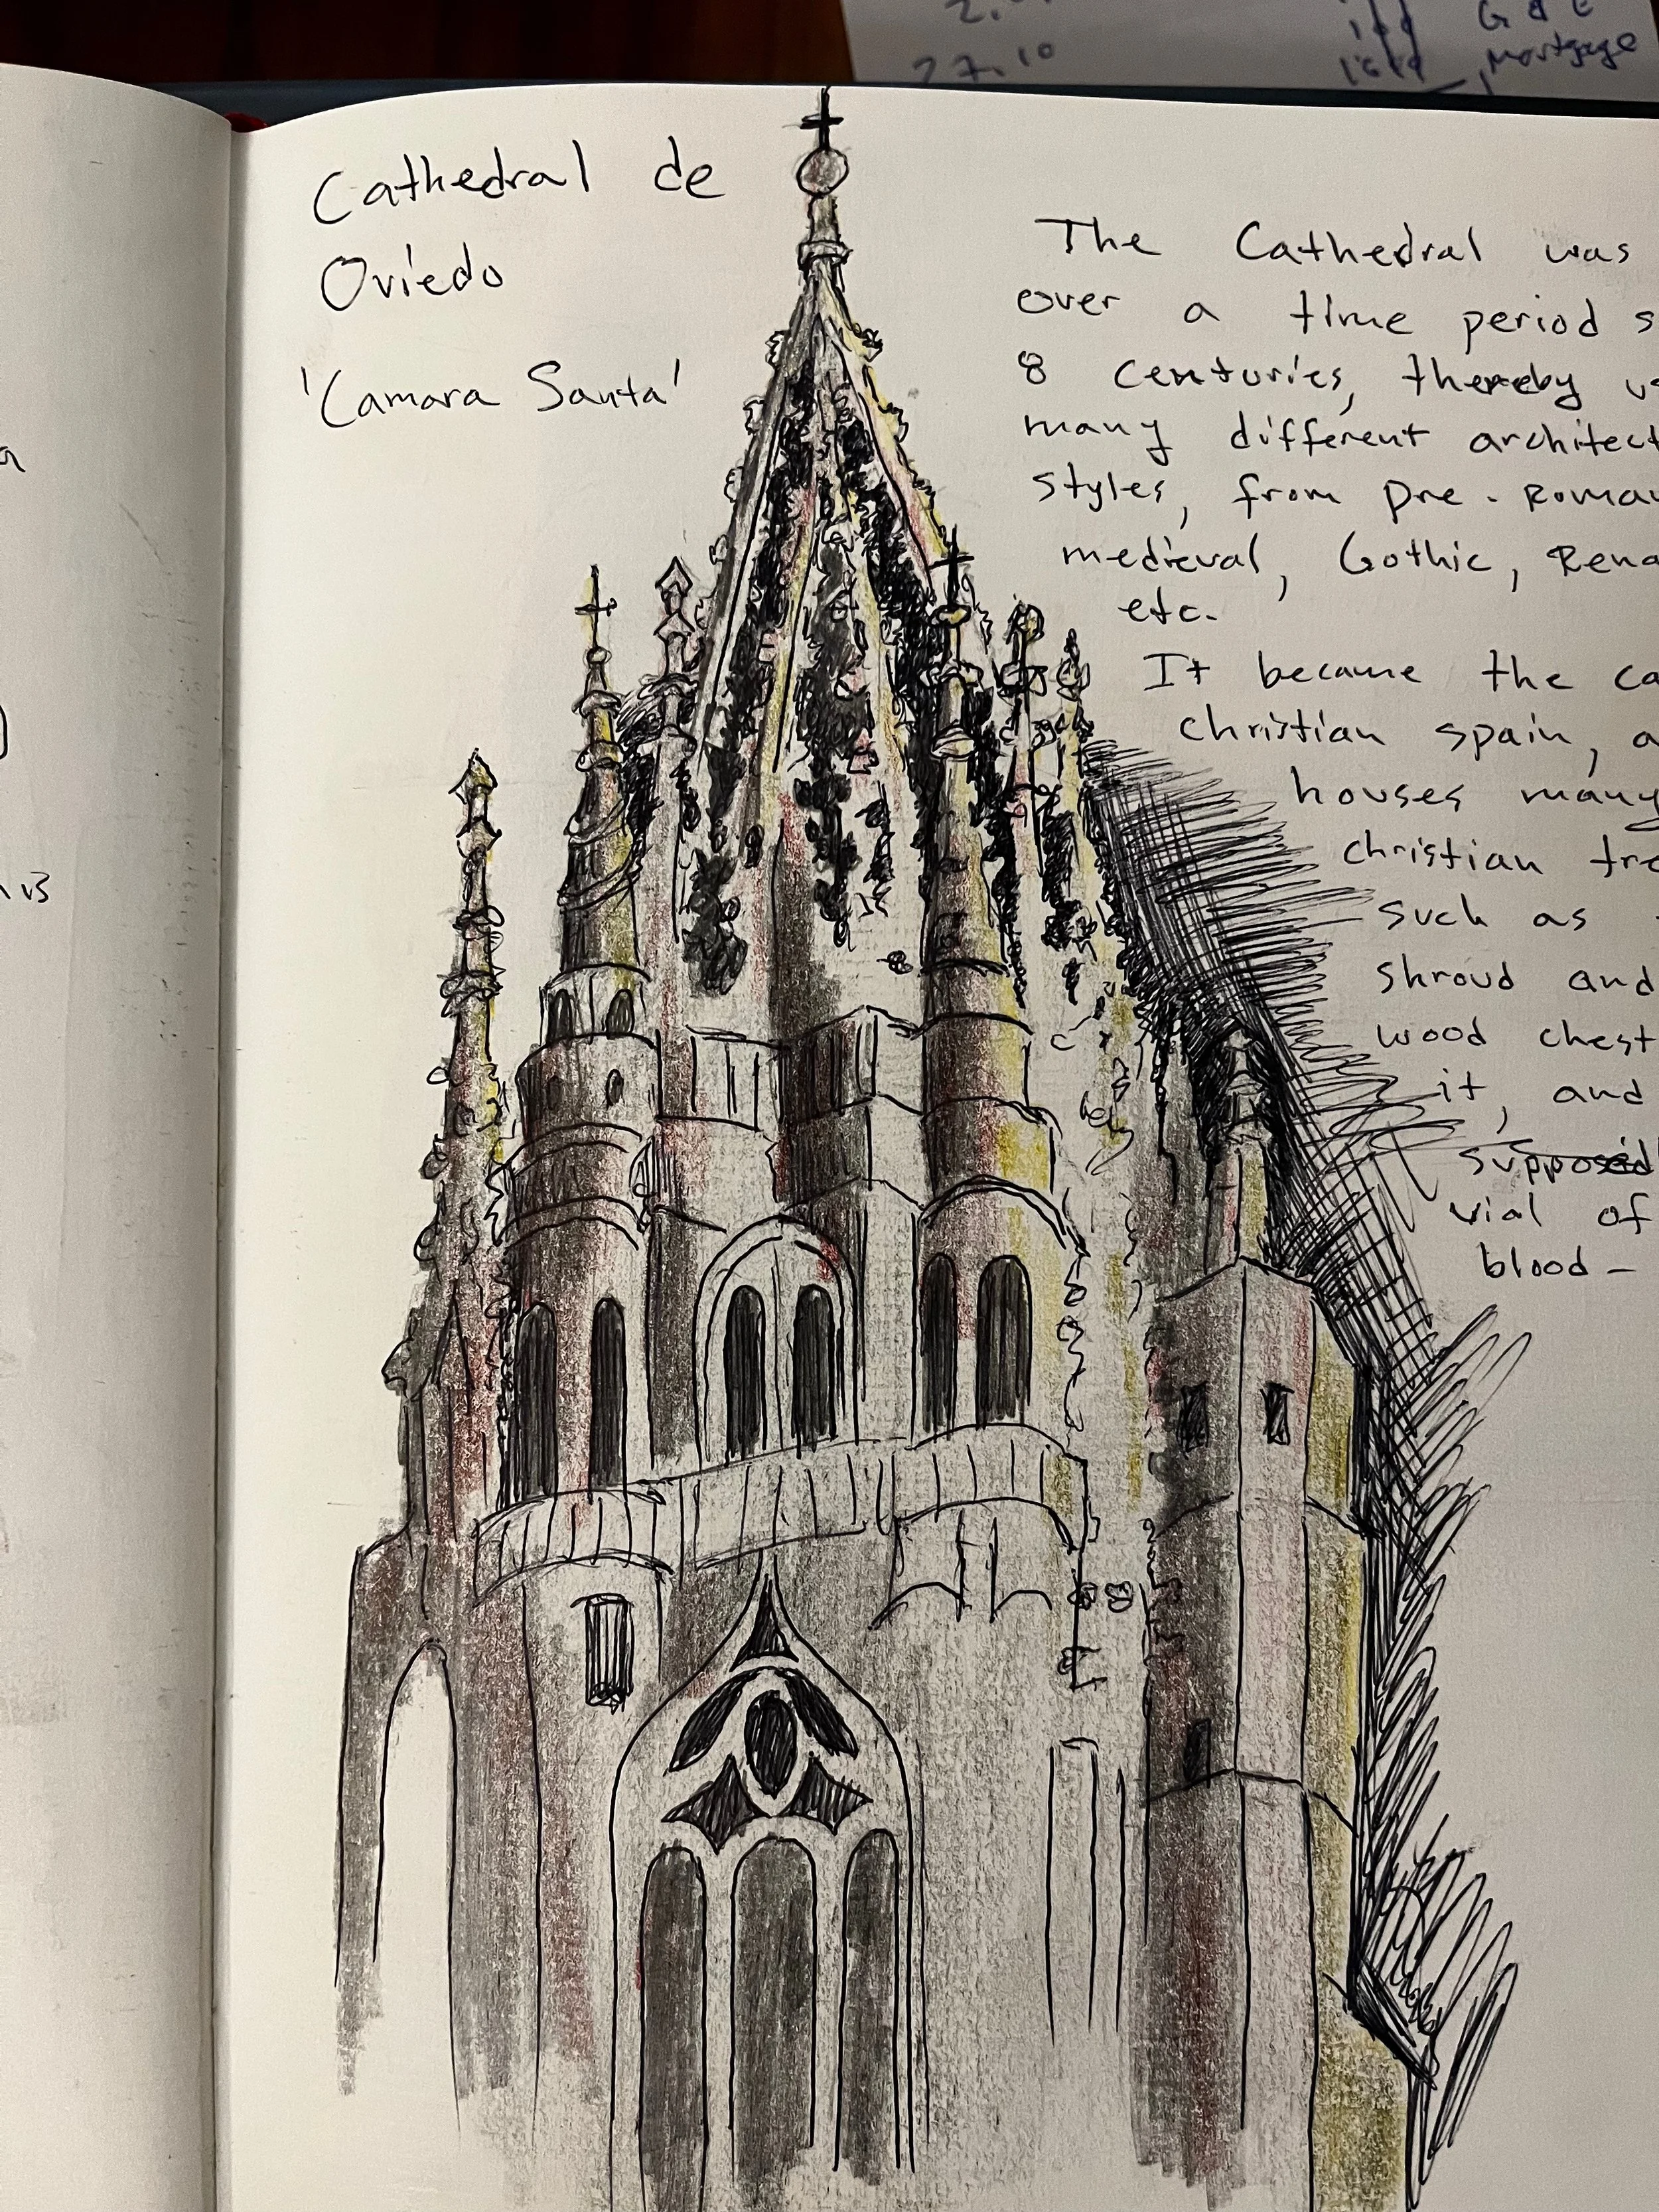 G & E
27.10
Mortgage
Cathedral de
Oviedo
'Camara Santa'
The Cathedral was
over a time period s
8 centuries, thereby us
many different architect
styles, from pre-Roman
medieval, Gothic, Rena
etc.
It became the ca
christian spain, a
houses many
christian tre
such as
shroud and
wood chest
it, and
supposed
vial of
blood -